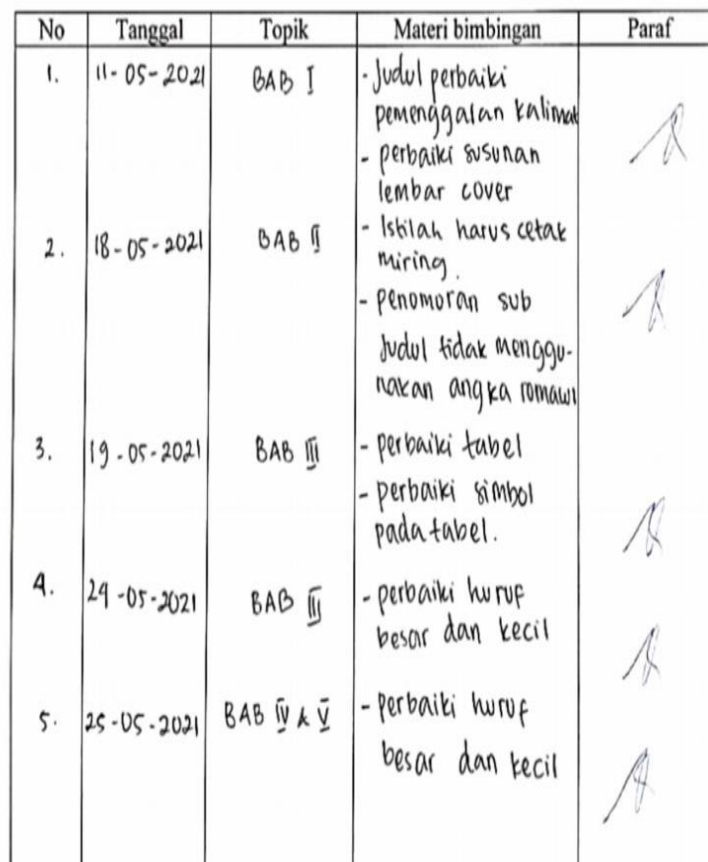 No Tanggal Topik Materi bimbingan Paraf
1. 11-05-2021 BAB I - Judul perbaiki
pemenggalan kalimat
- perbaiki susunan
lembar cover
2. 18-05-2021 BAB II - Istilah harus cetak
miring.
- penomoran sub
Judul tidak menggu-
nakan angka romawi
3. 19-05-2021 BAB III - perbaiki tabel
- perbaiki simbol
pada tabel.
4. 24-05-2021 BAB III - perbaiki huruf
besar dan kecil
5. 25-05-2021 BAB IV & V - perbaiki huruf
besar dan kecil